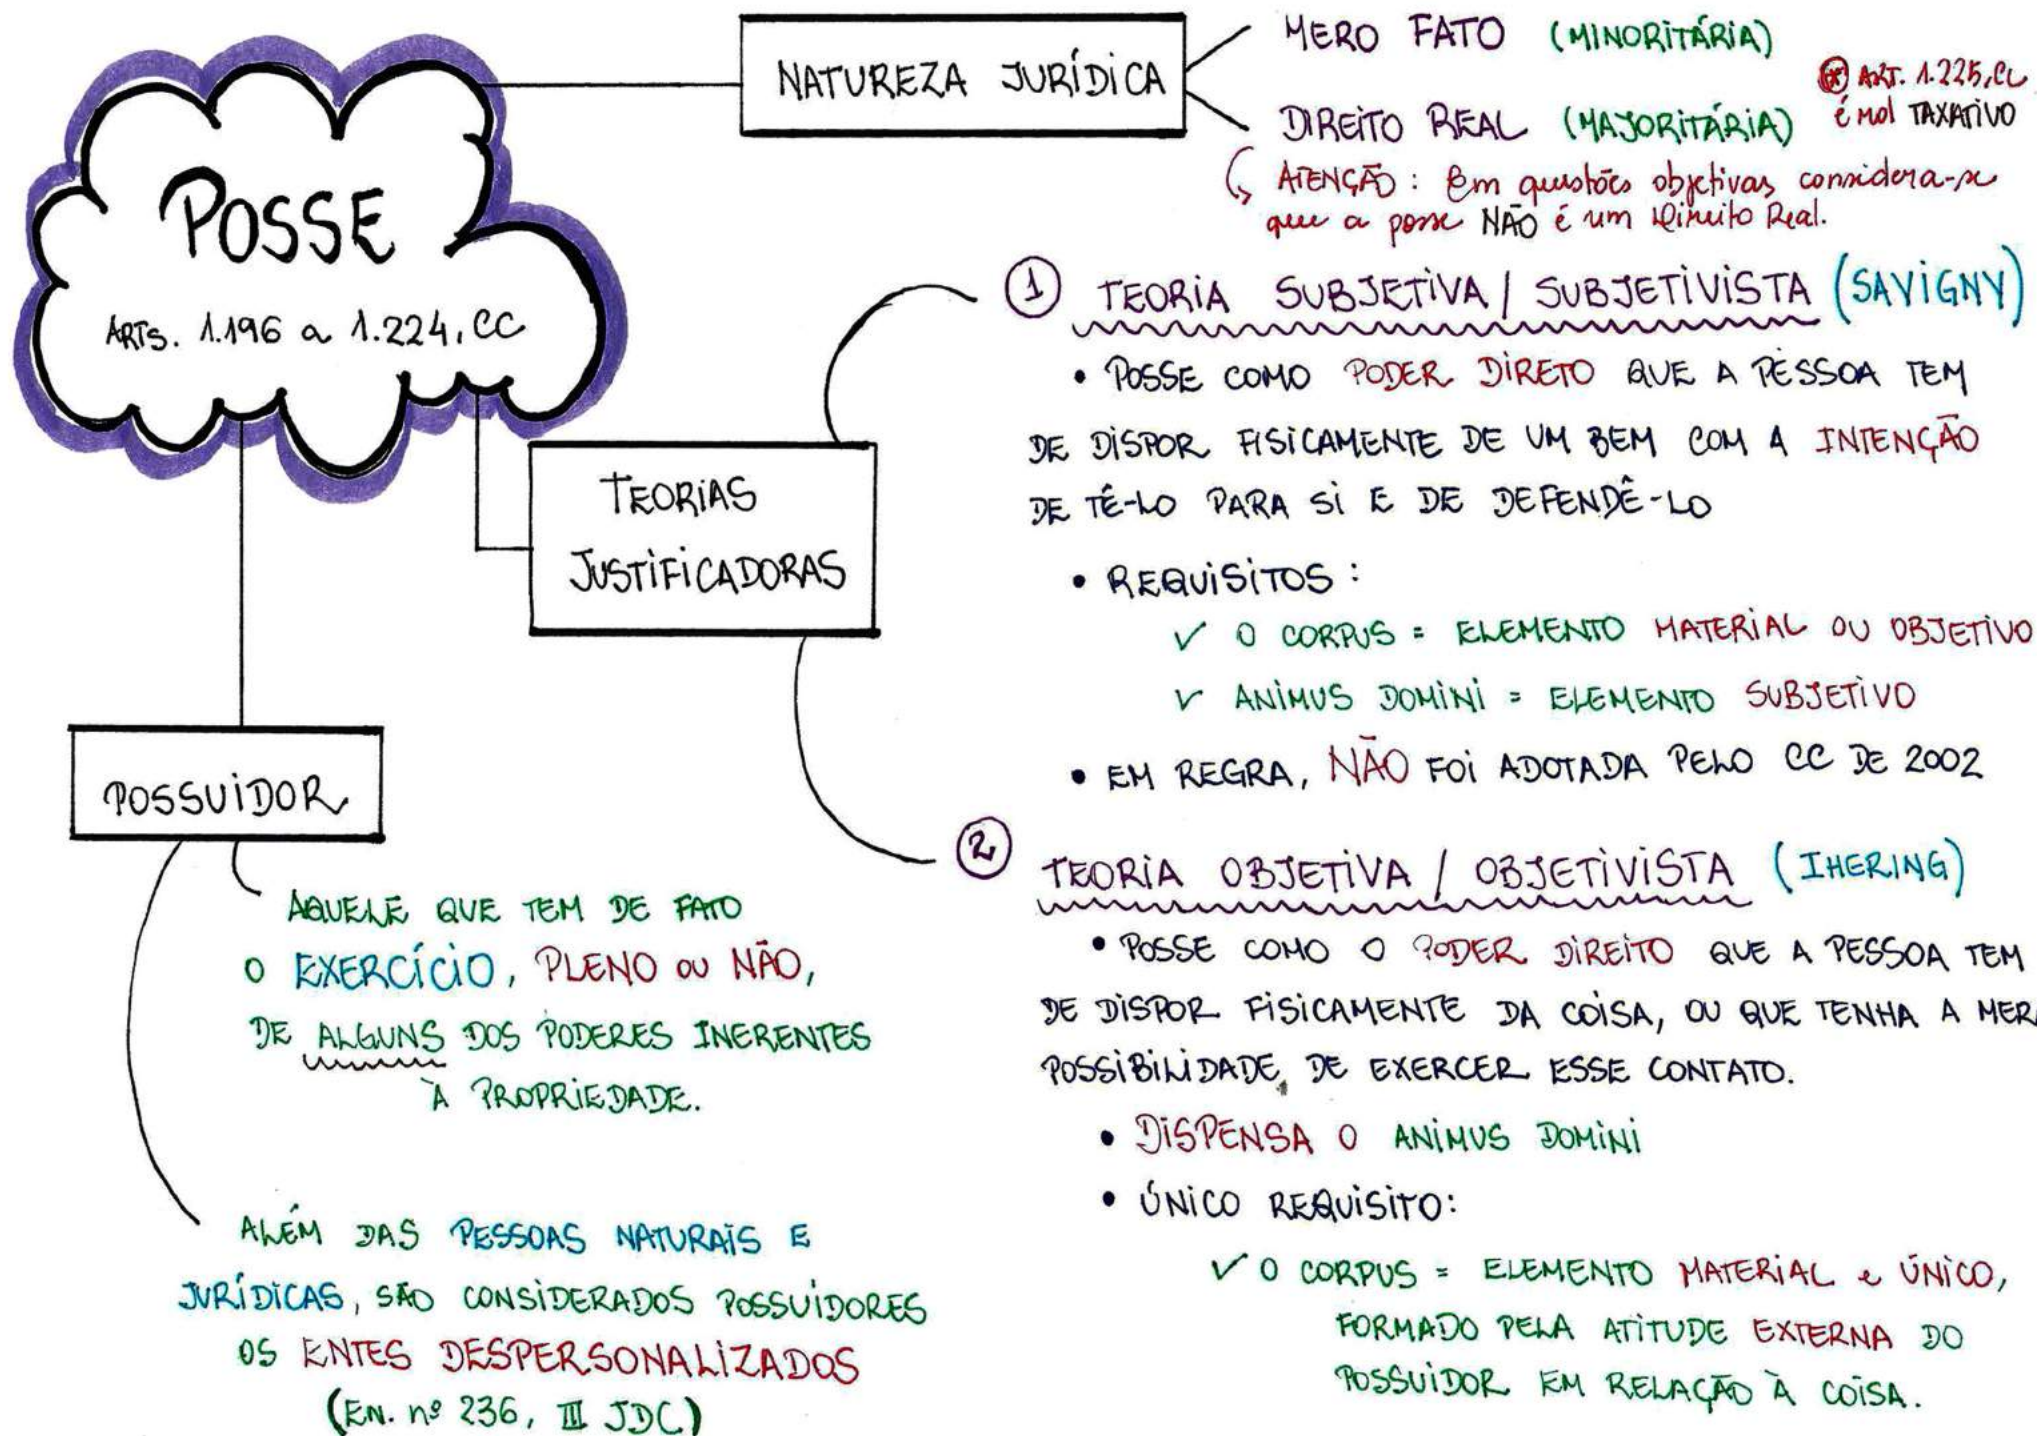 POSSE
ARTs. 1.196 a 1.224, CC
NATUREZA JURÍDICA
MERO FATO (MINORITÁRIA)
DIREITO REAL (MAJORITÁRIA)
* ART. 1.225, CC
é rol TAXATIVO
ATENÇÃO: Em questões objetivas considera-se
que a posse NÃO é um Direito Real.
TEORIAS
JUSTIFICADORAS
1 TEORIA SUBJETIVA / SUBJETIVISTA (SAVIGNY)
• POSSE COMO PODER DIRETO QUE A PESSOA TEM
DE DISPOR FISICAMENTE DE UM BEM COM A INTENÇÃO
DE TÊ-LO PARA SI E DE DEFENDÊ-LO
• REQUISITOS:
✓ O CORPUS = ELEMENTO MATERIAL OU OBJETIVO
✓ ANIMUS DOMINI = ELEMENTO SUBJETIVO
• EM REGRA, NÃO FOI ADOTADA PELO CC DE 2002
2 TEORIA OBJETIVA / OBJETIVISTA (IHERING)
• POSSE COMO O PODER DIREITO QUE A PESSOA TEM
DE DISPOR FISICAMENTE DA COISA, OU QUE TENHA A MERA
POSSIBILIDADE DE EXERCER ESSE CONTATO.
• DISPENSA O ANIMUS DOMINI
• ÚNICO REQUISITO:
✓ O CORPUS = ELEMENTO MATERIAL e ÚNICO,
FORMADO PELA ATITUDE EXTERNA DO
POSSUIDOR EM RELAÇÃO À COISA.
POSSUIDOR
AQUELE QUE TEM DE FATO
O EXERCÍCIO, PLENO OU NÃO,
DE ALGUNS DOS PODERES INERENTES
À PROPRIEDADE.
ALÉM DAS PESSOAS NATURAIS E
JURÍDICAS, SÃO CONSIDERADOS POSSUIDORES
OS ENTES DESPERSONALIZADOS
(EN. nº 236, III JDC)